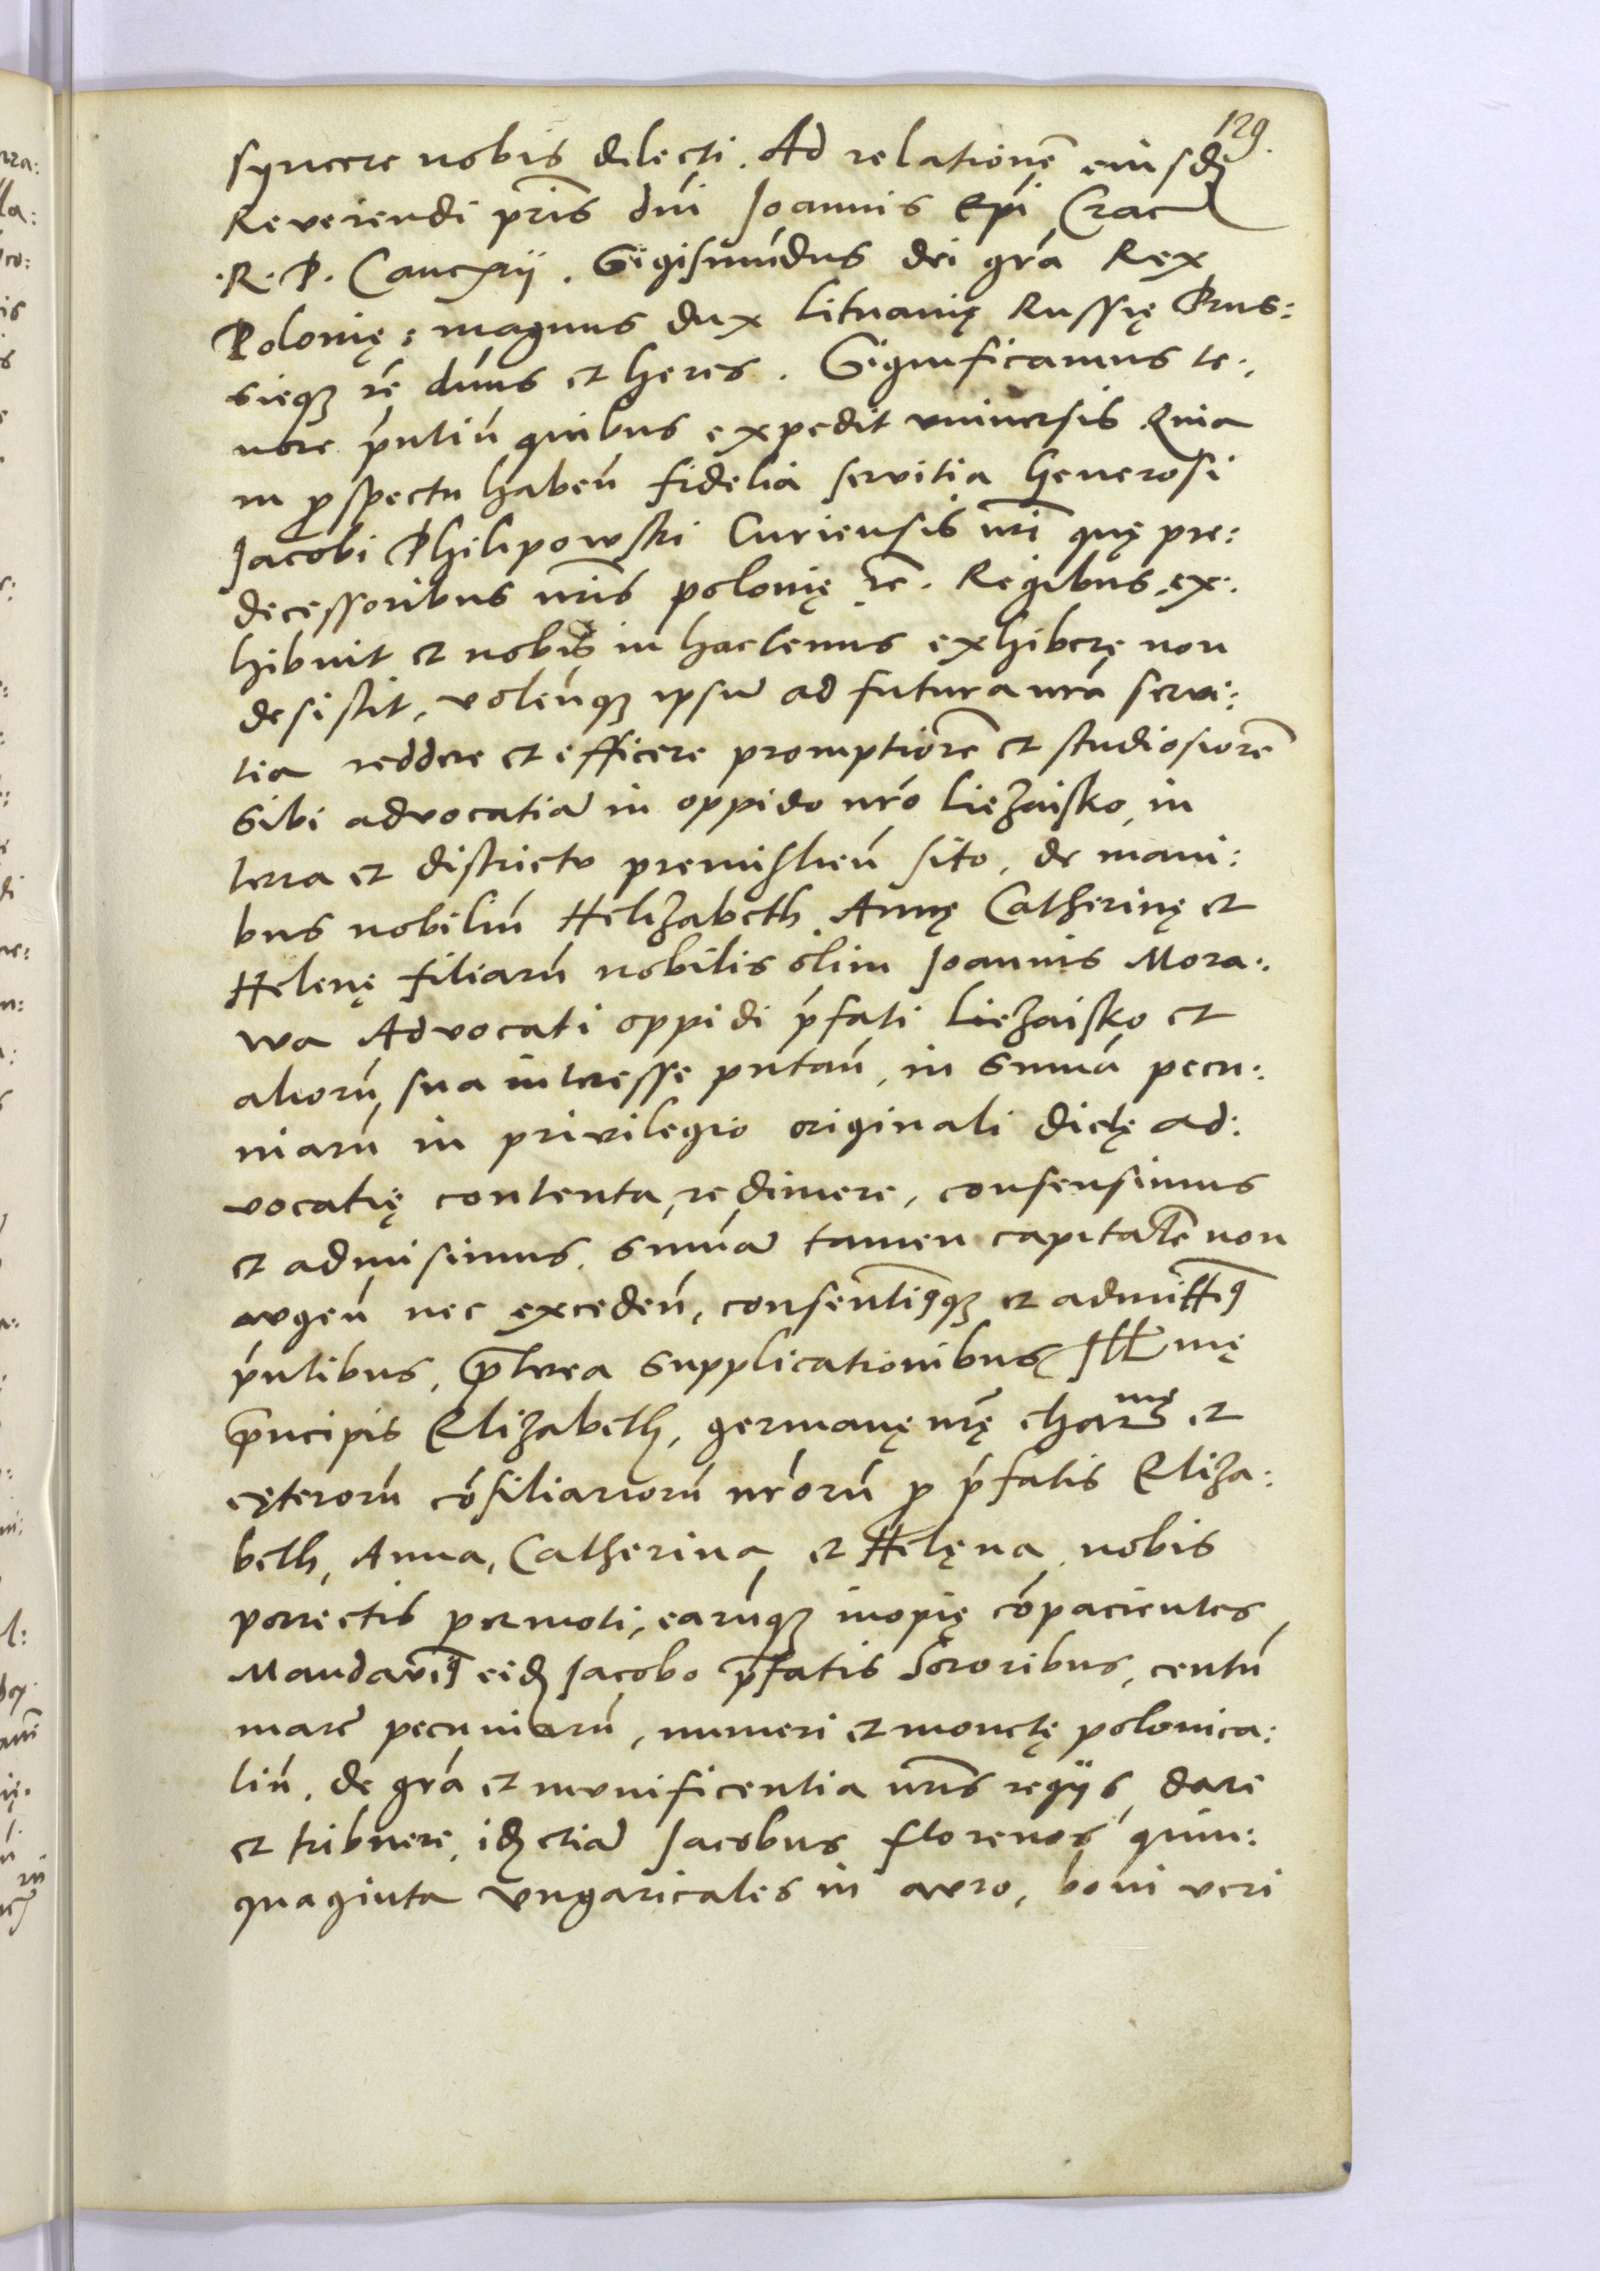 129.
syncere nobis dilecti. Ad relationē eiusdē
Reverendi pr̄is dn̄i Joannis Ep̄i Crac
.R.P. Cancxrij. Sigismūndus dei gr̄a Rex
Polonię: magnus dux Lituanię Russię Prus:
sieq3 rē dn̄us et heres. Significamus te:
nore p̄ntiū quibus expedit vniversis Quia
in prospectu habeń fidelia servitia Generosi
Jacobi Philipowski Curiensis nr̄i quę pre:
decessoribus nr̄is polonię rē. Regibus ex:
hibuit et nobis in hactenus exhibere non
desistit, voleńq3 ipsū ad futura nr̄a servi:
tia reddere et efficere promptiorē et studiosiorē
sibi advocatiā in oppido nr̄o Liezaisko in
terra et districtu premislień sito, de mani:
bus nobiliū Helizabeth Annę Catherinę et
Helenę filiarū nobilis olim Joannis Mora:
wa Advocati oppidi p̄fati Liezaisko et
aliorū sua interesse putań, in sum̄a pecu:
niarū in privilegio originali dictę ad:
vocatię contenta redimere, consensimus
et admisimus. sum̄ā tamen capitalē non
augeń nec excedeń, consentimꝰq3 et admittimꝰ
p̄ntibus, p̄terea supplicationibus Ill mę
prīncipis Elizabeth, germanę nr̄ę char mę et
cęterorū cōsiliariorū nr̄orū pro p̄fatis Eliza:
beth, Anna, Catherina et Helęna nobis
porrectis permoti, earūq3 inopię cōpacientes
Mandavimꝰ eidē Jacobo p̄fatis Sororibus, centū
marc̄ pecuniarū, numeri et monetę polonica:
liū, de gr̄a et munificentia nr̄is regijs dare
et tribuere, idē etiā Jacobus florenos quin:
quaginta vngaricales in auro, boni veri